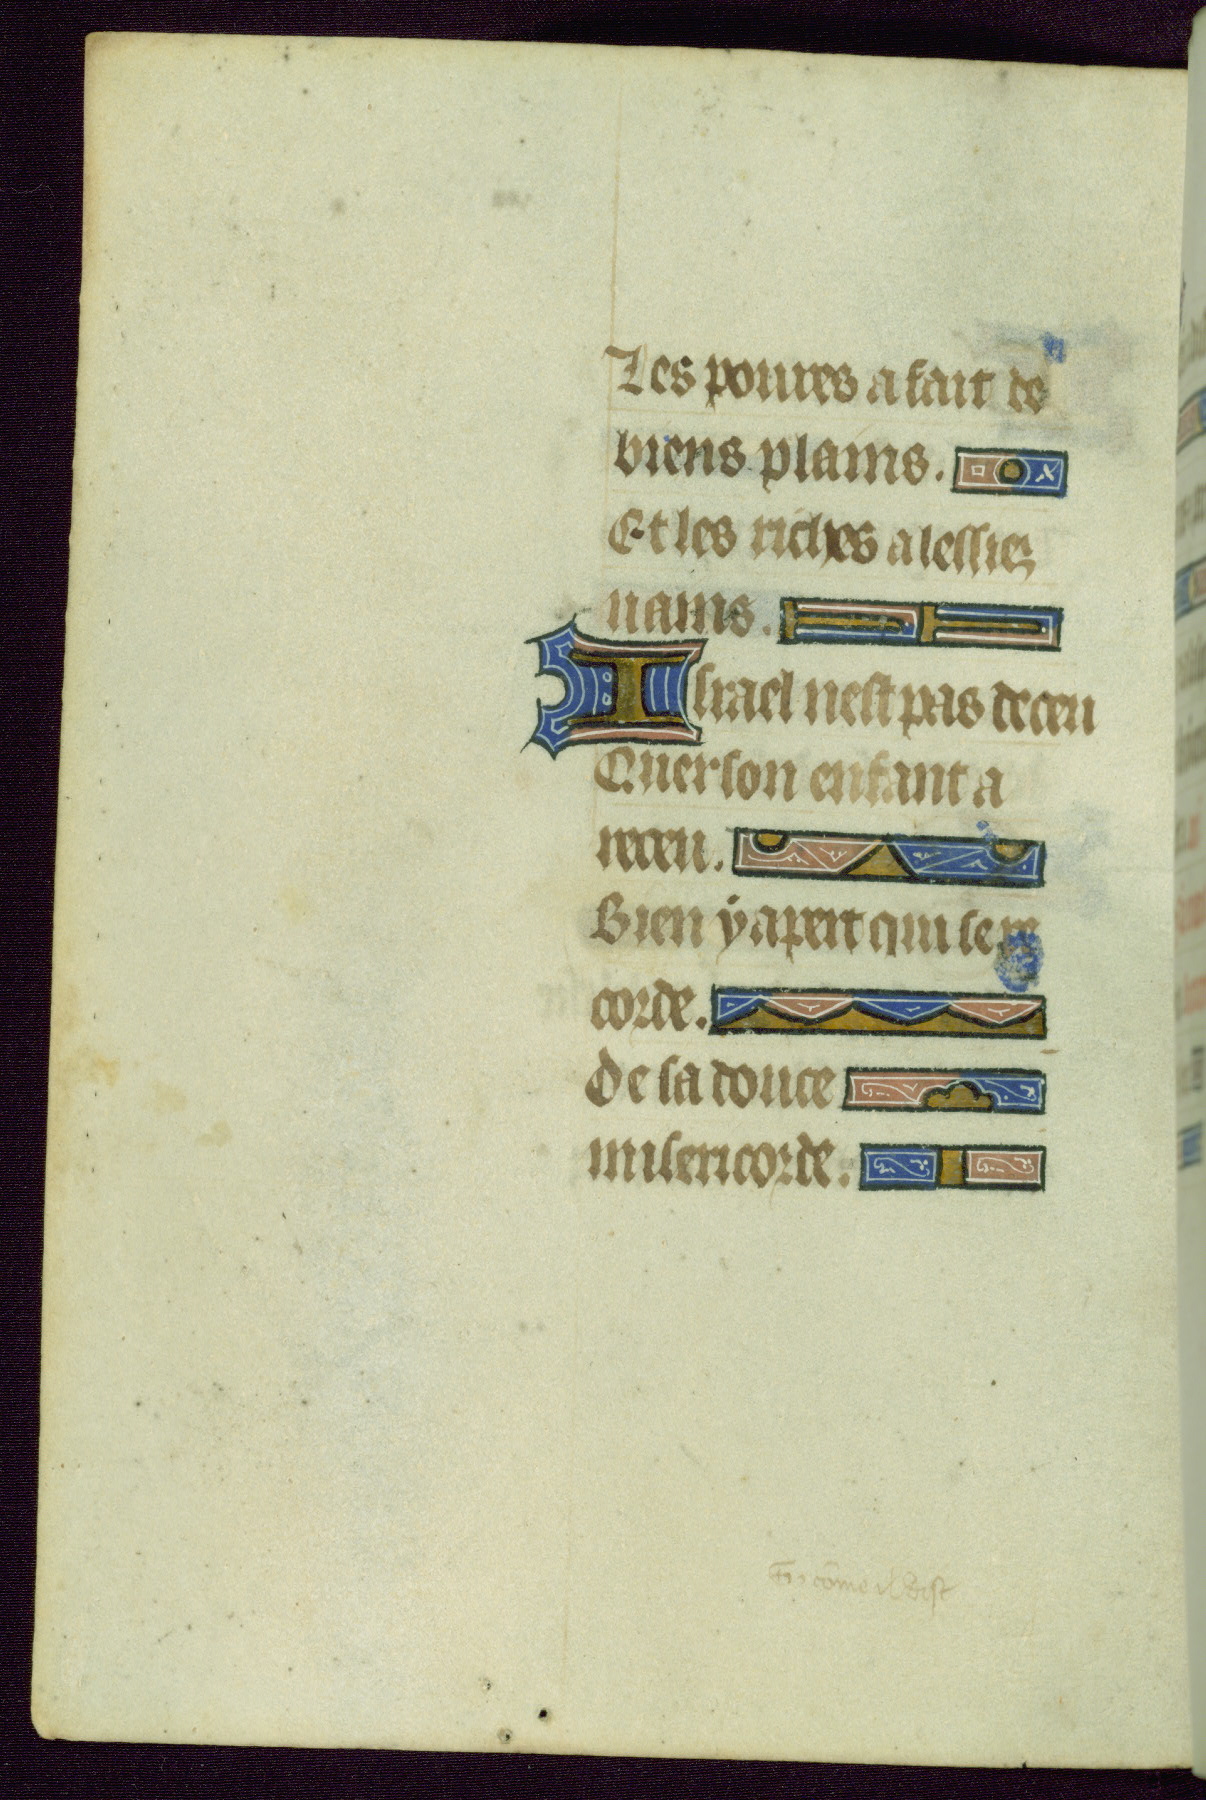 Les poures a fait de
biens plains.
Et les riches a lessiez
uains.
Israel nest pas deceu
Quer son enfant a
receu.
Bien y apert qui se re
corde.
De sa douce
misericorde.
comme il dist